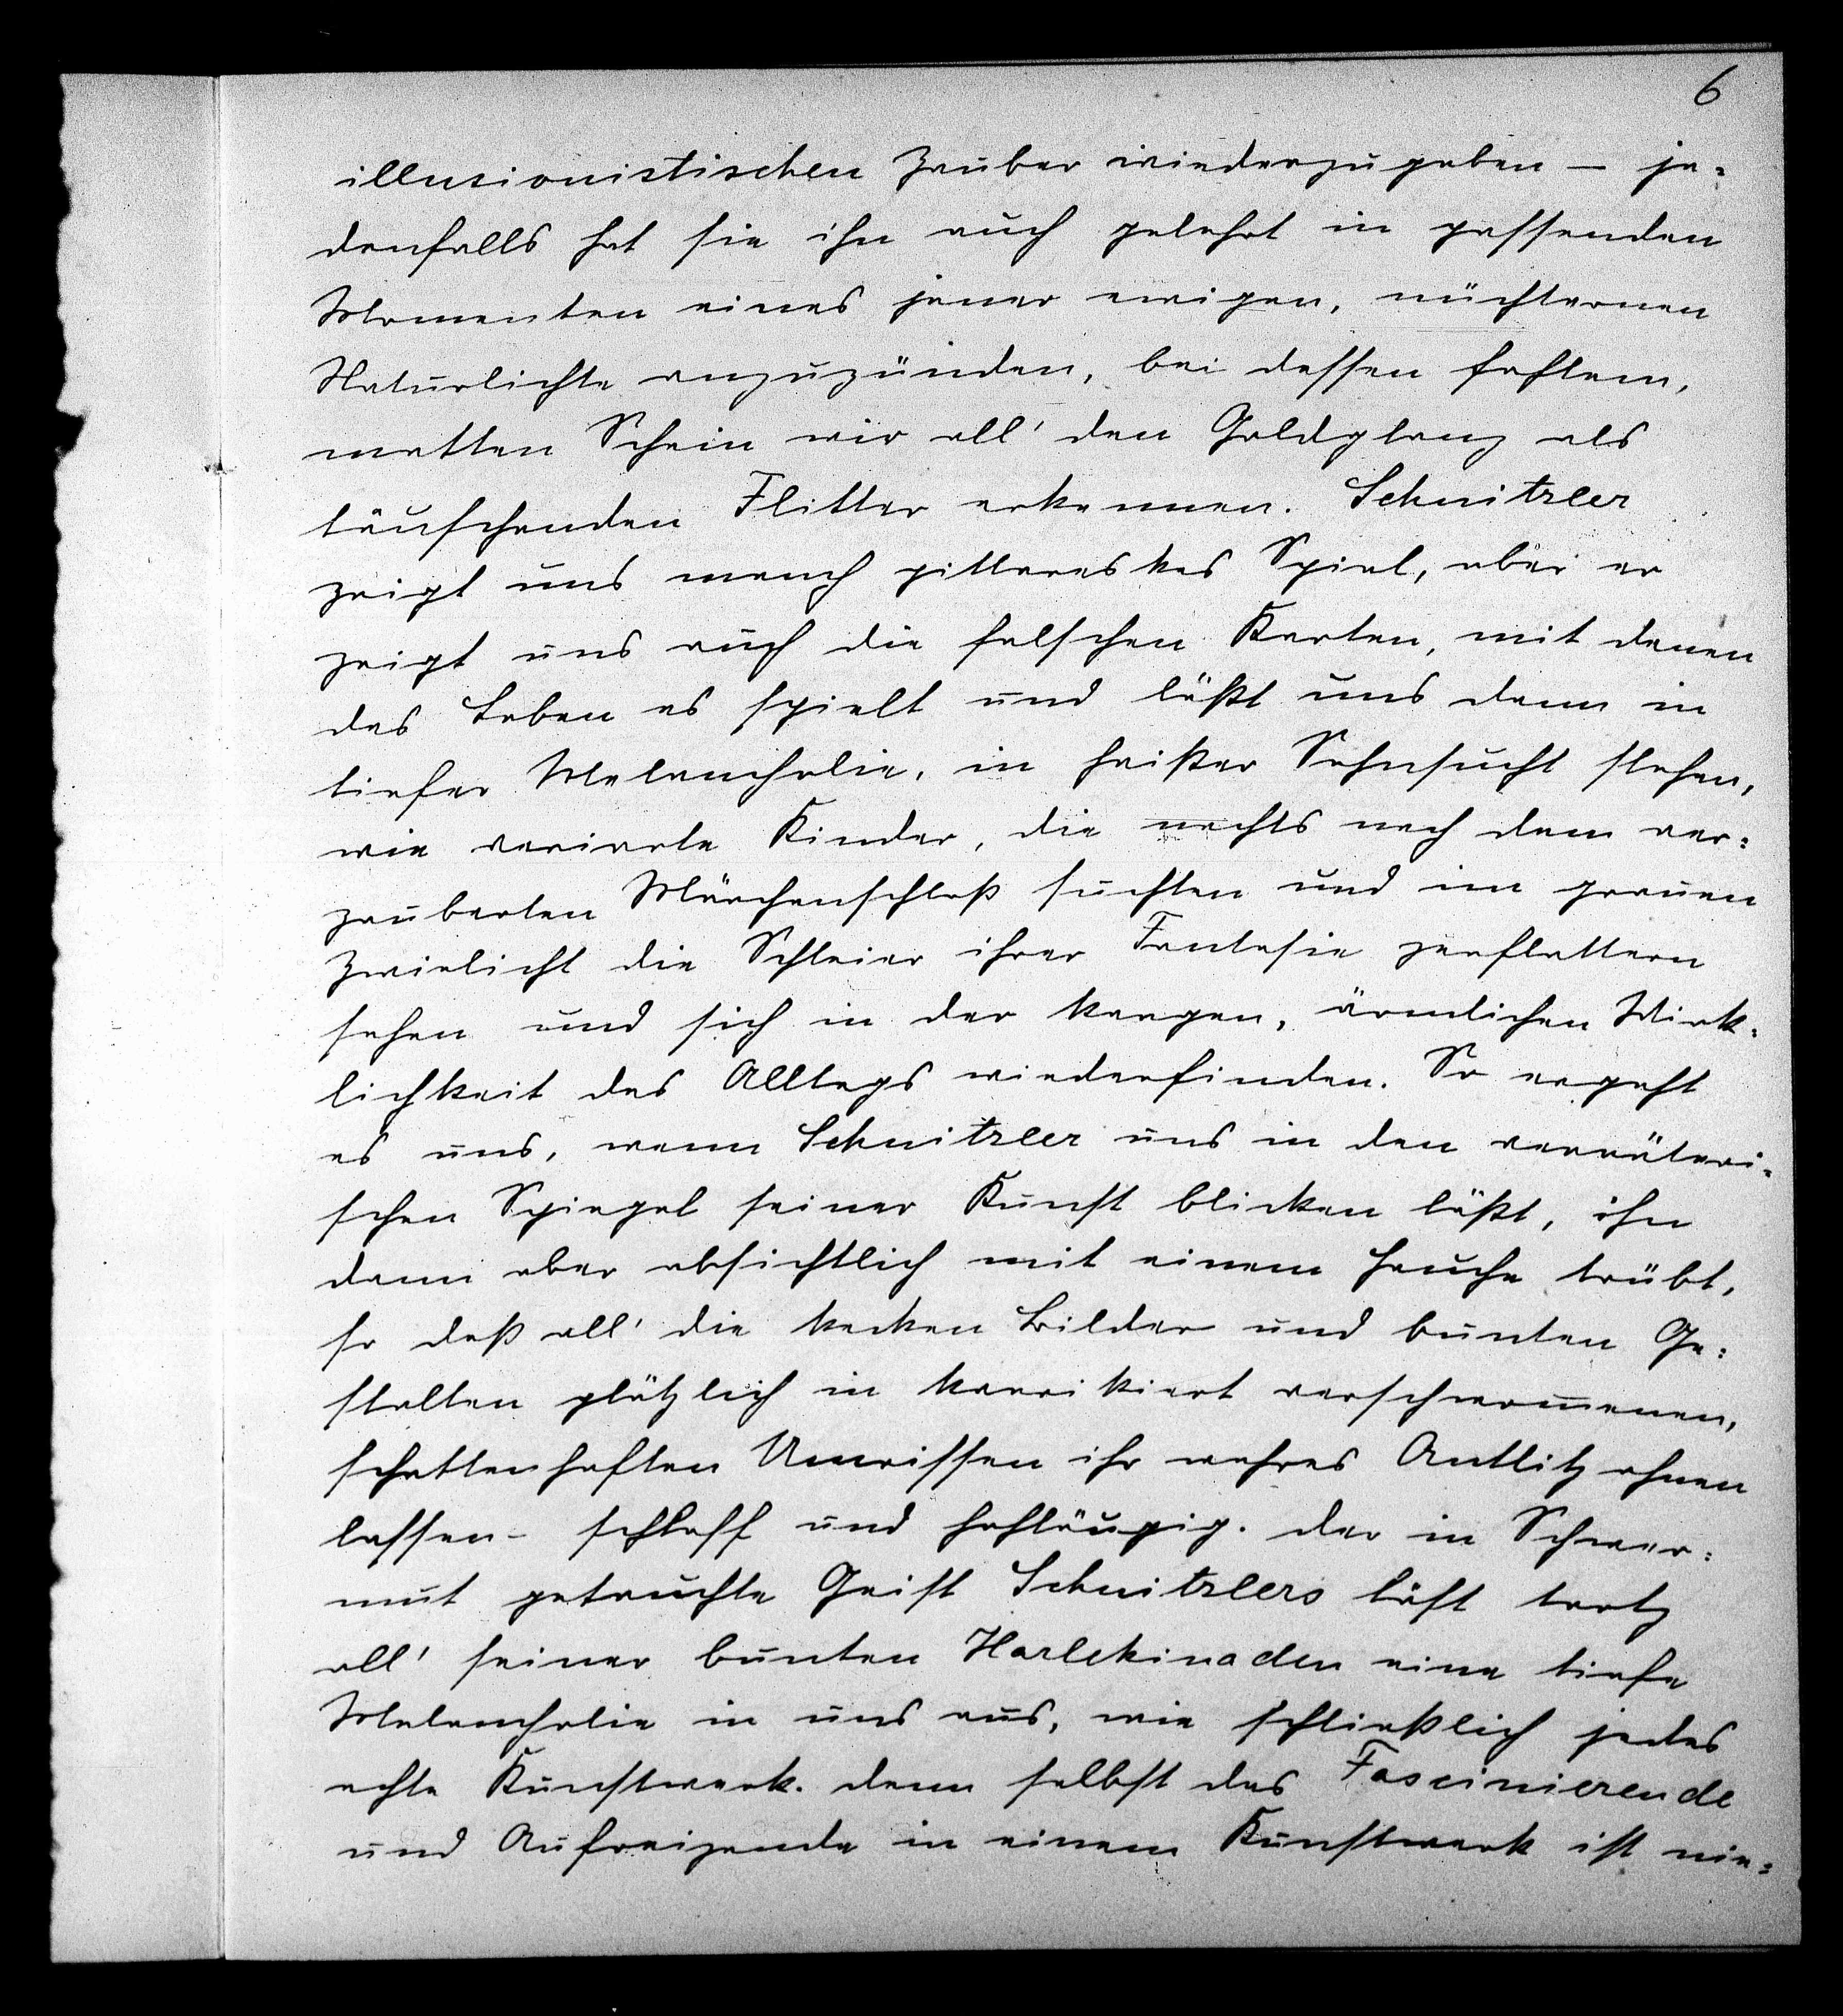 6
illusionistischen Zauber wiederzugeben – je=
denfalls hat sie ihn auch gelehrt in passenden
Momenten eines jener ewigen, nüchternen
Naturlichte anzuzünden, bei dessen fahlem,
matten Schein wir all' den Goldglanz als
täuschenden Flitter erkennen. Schnitzler
zeigt uns manch pittoreskes Spiel, aber er
zeigt uns auch die falschen Karten, mit denen
das Leben es spielt und läßt uns dann in
tiefer Melancholie, in heißer Sehnsucht stehen,
wie verirrte Kinder, die nachts nach dem ver=
zauberten Märchenschloß suchten und im grauen
Zwielicht die Schleier ihrer Fantasie zerflattern
sehen und sich in der kargen, ärmlichen Wirk=
lichkeit des Alltags wiederfinden. So ergeht
es uns, wenn Schnitzler uns in den verräteri=
schen Spiegel seiner Kunst blicken läßt, ihn
dann aber absichtlich mit einem Hauche trübt,
so daß all' die kecken Bilder und bunten Ge=
stalten plötzlich in karrikiert verschwom̅enen,
schattenhaften Umrissen ihr wahres Antlitz ahnen
lassen – schlaff und hohläugig. Der in Schwer=
mut getauchte Geist Schnitzlers löst trotz
all' seiner bunten Harlekinaden eine tiefe
Melancholie in uns aus, wie schließlich jedes
echte Kunstwerk. Denn selbst das Fascinierende
und Aufreizende in einem Kunstwerk ist nie=